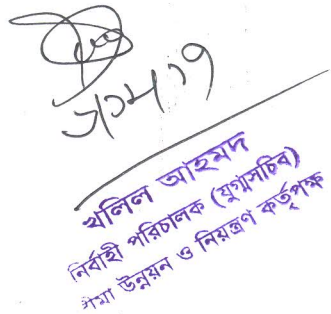 খলিল আহমদ
নির্বাহী পরিচালক (যুগ্মসচিব)
উন্নয়ন ও নিয়ন্ত্রণ কর্তৃপক্ষ